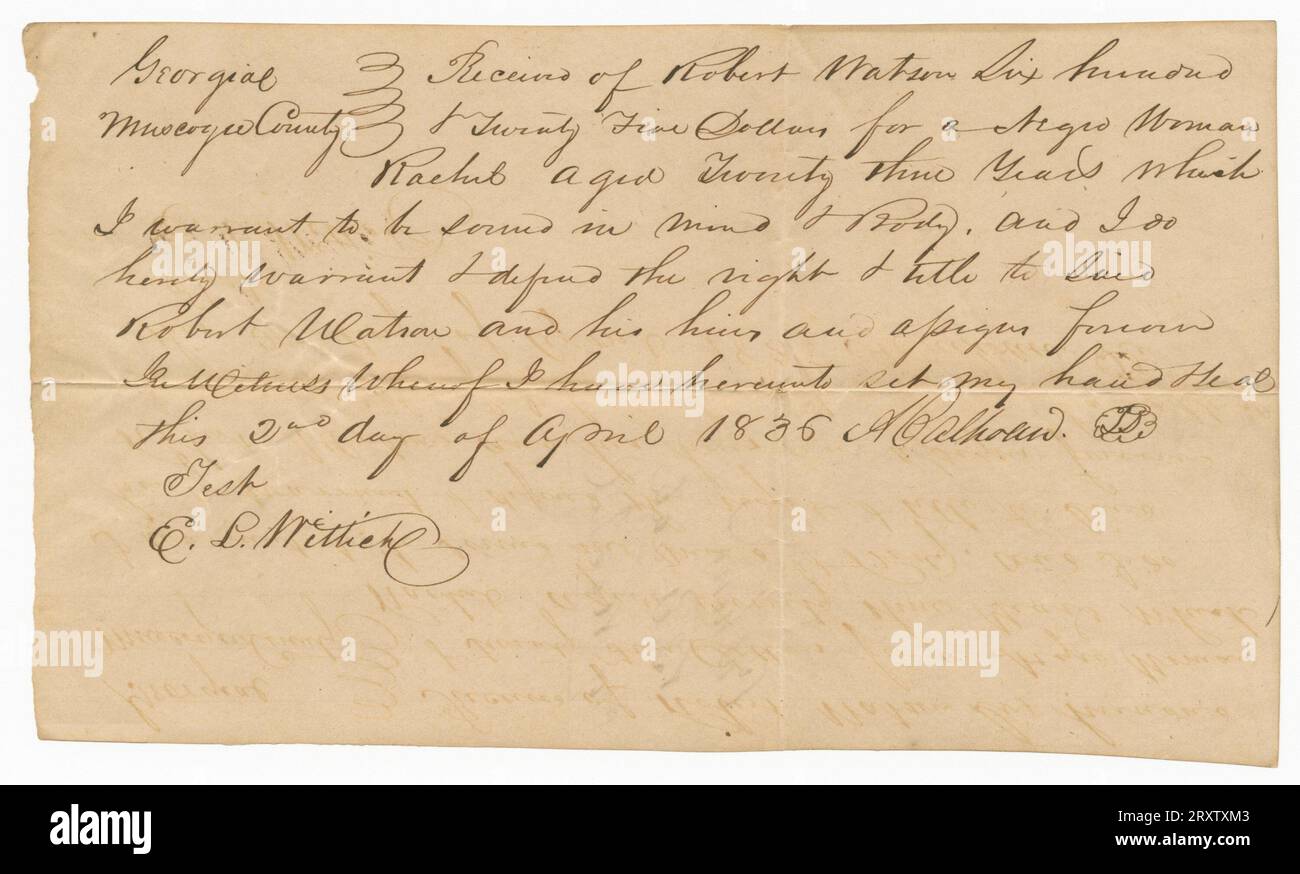 Georgia Received of Robert Watson Six hundred
Muscogee County & Twenty Five Dollars for a Negro Woman
Rachel aged Twenty three Years which
I warrant to be sound in mind & Body. and I do
hereby warrant & defend the right & title to Said
Robert Watson and his heirs and assigns forever
In Witness Whereof I have hereunto set my hand & Seal
this 2nd day of April 1836 A Calhoun.
Test
E. L. Wittich
alamy
Image ID: 2RXTXM3
www.alamy.com